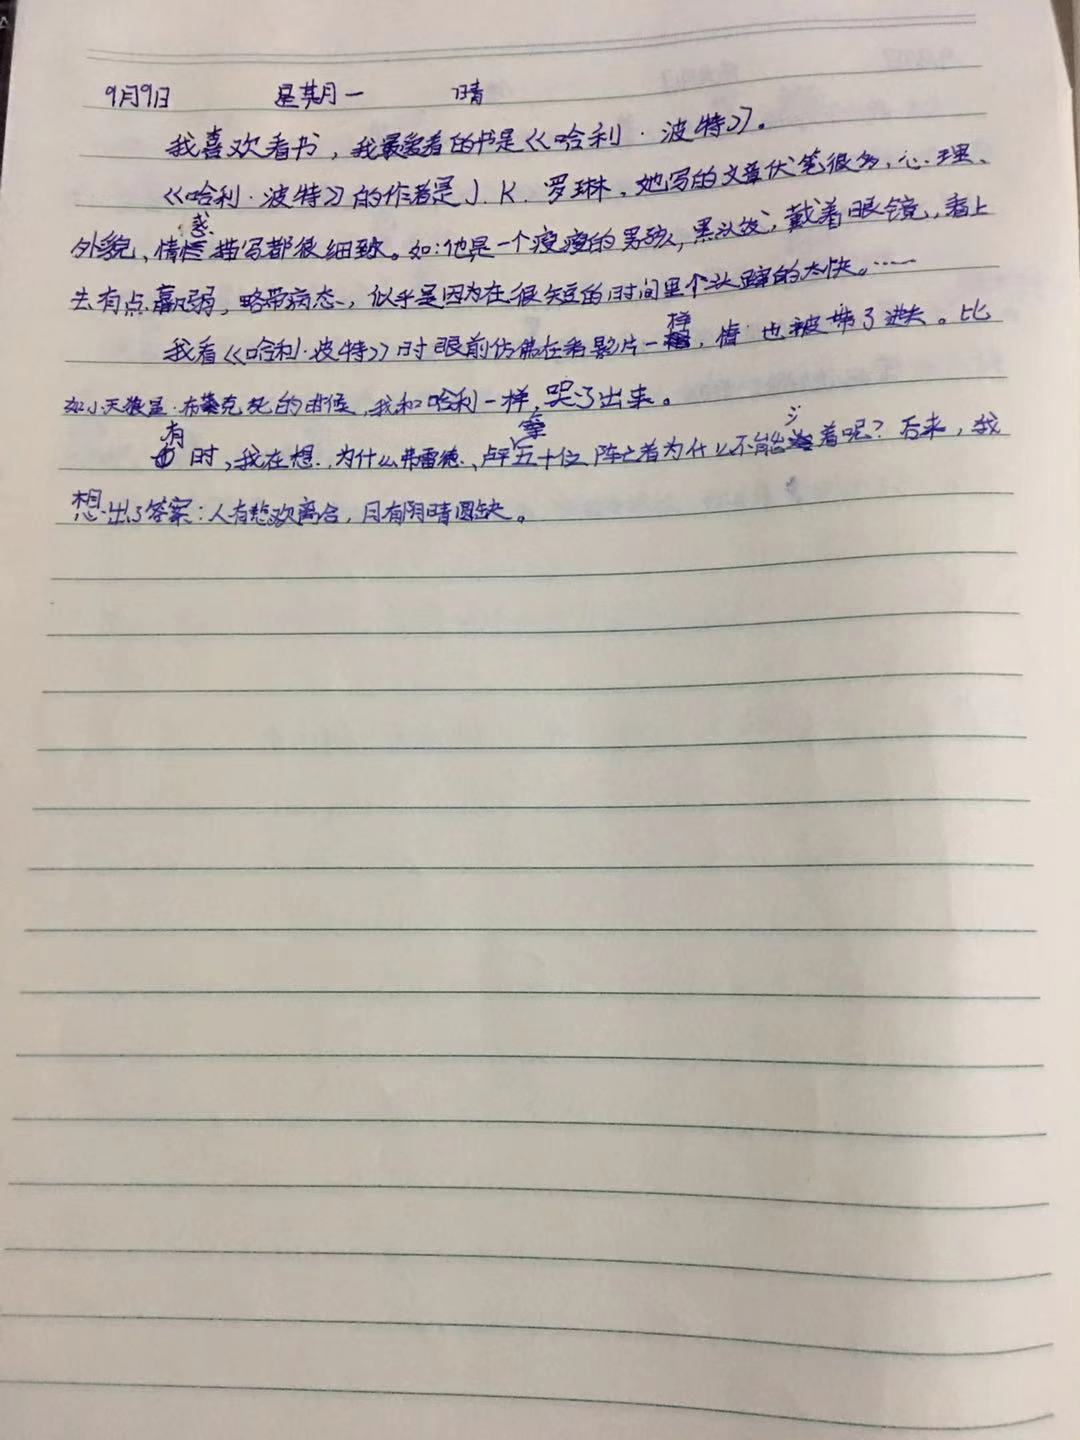 9月9日 星期一 晴
我喜欢看书，我最爱看的书是《哈利·波特》。
《哈利·波特》的作者是J.K.罗琳，她写的文章伏笔很多，心理、
外貌、情感描写都很细致。如：他是一个瘦瘦的男孩，黑头发，戴着眼镜，看上
去有点羸弱，略带病态，似乎是因为在很短的时间里个头蹿的太快。……
我看《哈利·波特》时眼前仿佛在看影片一样，情也被带了进去。比
如小天狼星·布莱克死的时候，我和哈利一样，哭了出来。
有时，我在想，为什么弗雷德、卢平等五十位阵亡者为什么不能活着呢？后来，我
想出了答案：人有悲欢离合，月有阴晴圆缺。